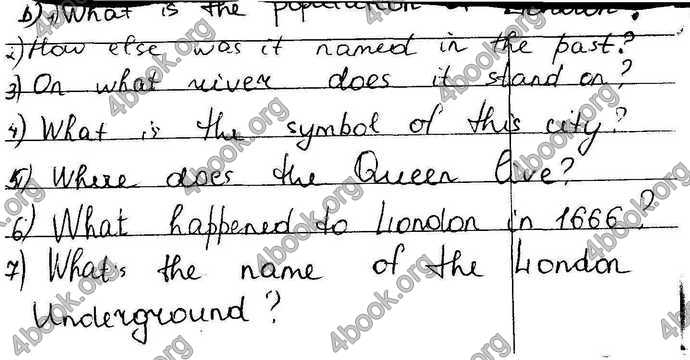 b) 1) What is the population of London?
2) How else was it named in the past?
3) On what river does it stand on?
4) What is the symbol of this city?
5) Where does the Queen live?
6) What happened to London in 1666?
7) What's the name of the London
Underground?
4book.org